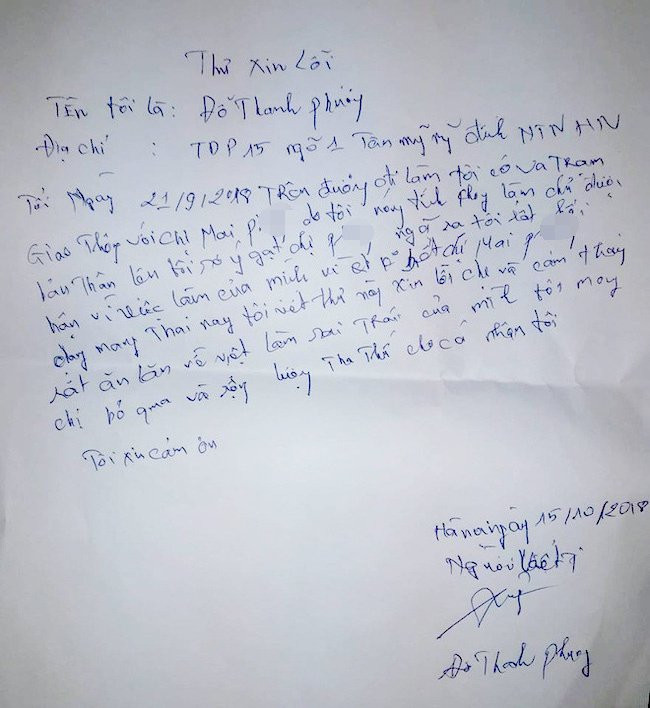 Thư xin Lỗi
Tên tôi là: Đỗ Thanh Phượng
Địa chỉ : TDP 15 ngõ 1 Tân mỹ mỹ đình NTL HN
Tối Ngày 21/9/2018 Trên đường đi làm tôi có va Trạm
Giao Thông với chị Mai P. do tôi nóng tính không làm chủ được
bản Thân lên tôi sơ ý gạt chị P. ngã ra tôi rất hối
hận vì việc làm của mình vì chị Mai P.
đang mang Thai nay tôi viết thư này xin lỗi chị và cảm thấy
rất ăn lăn về việt làm sai Trái của mình tôi mong
chị bỏ qua và rộng lượng Tha Thứ cho cá nhận tôi
Tôi xin cảm ơn
Hà nội ngày 15/10/2018
Người viết
Đỗ Thanh Phượng